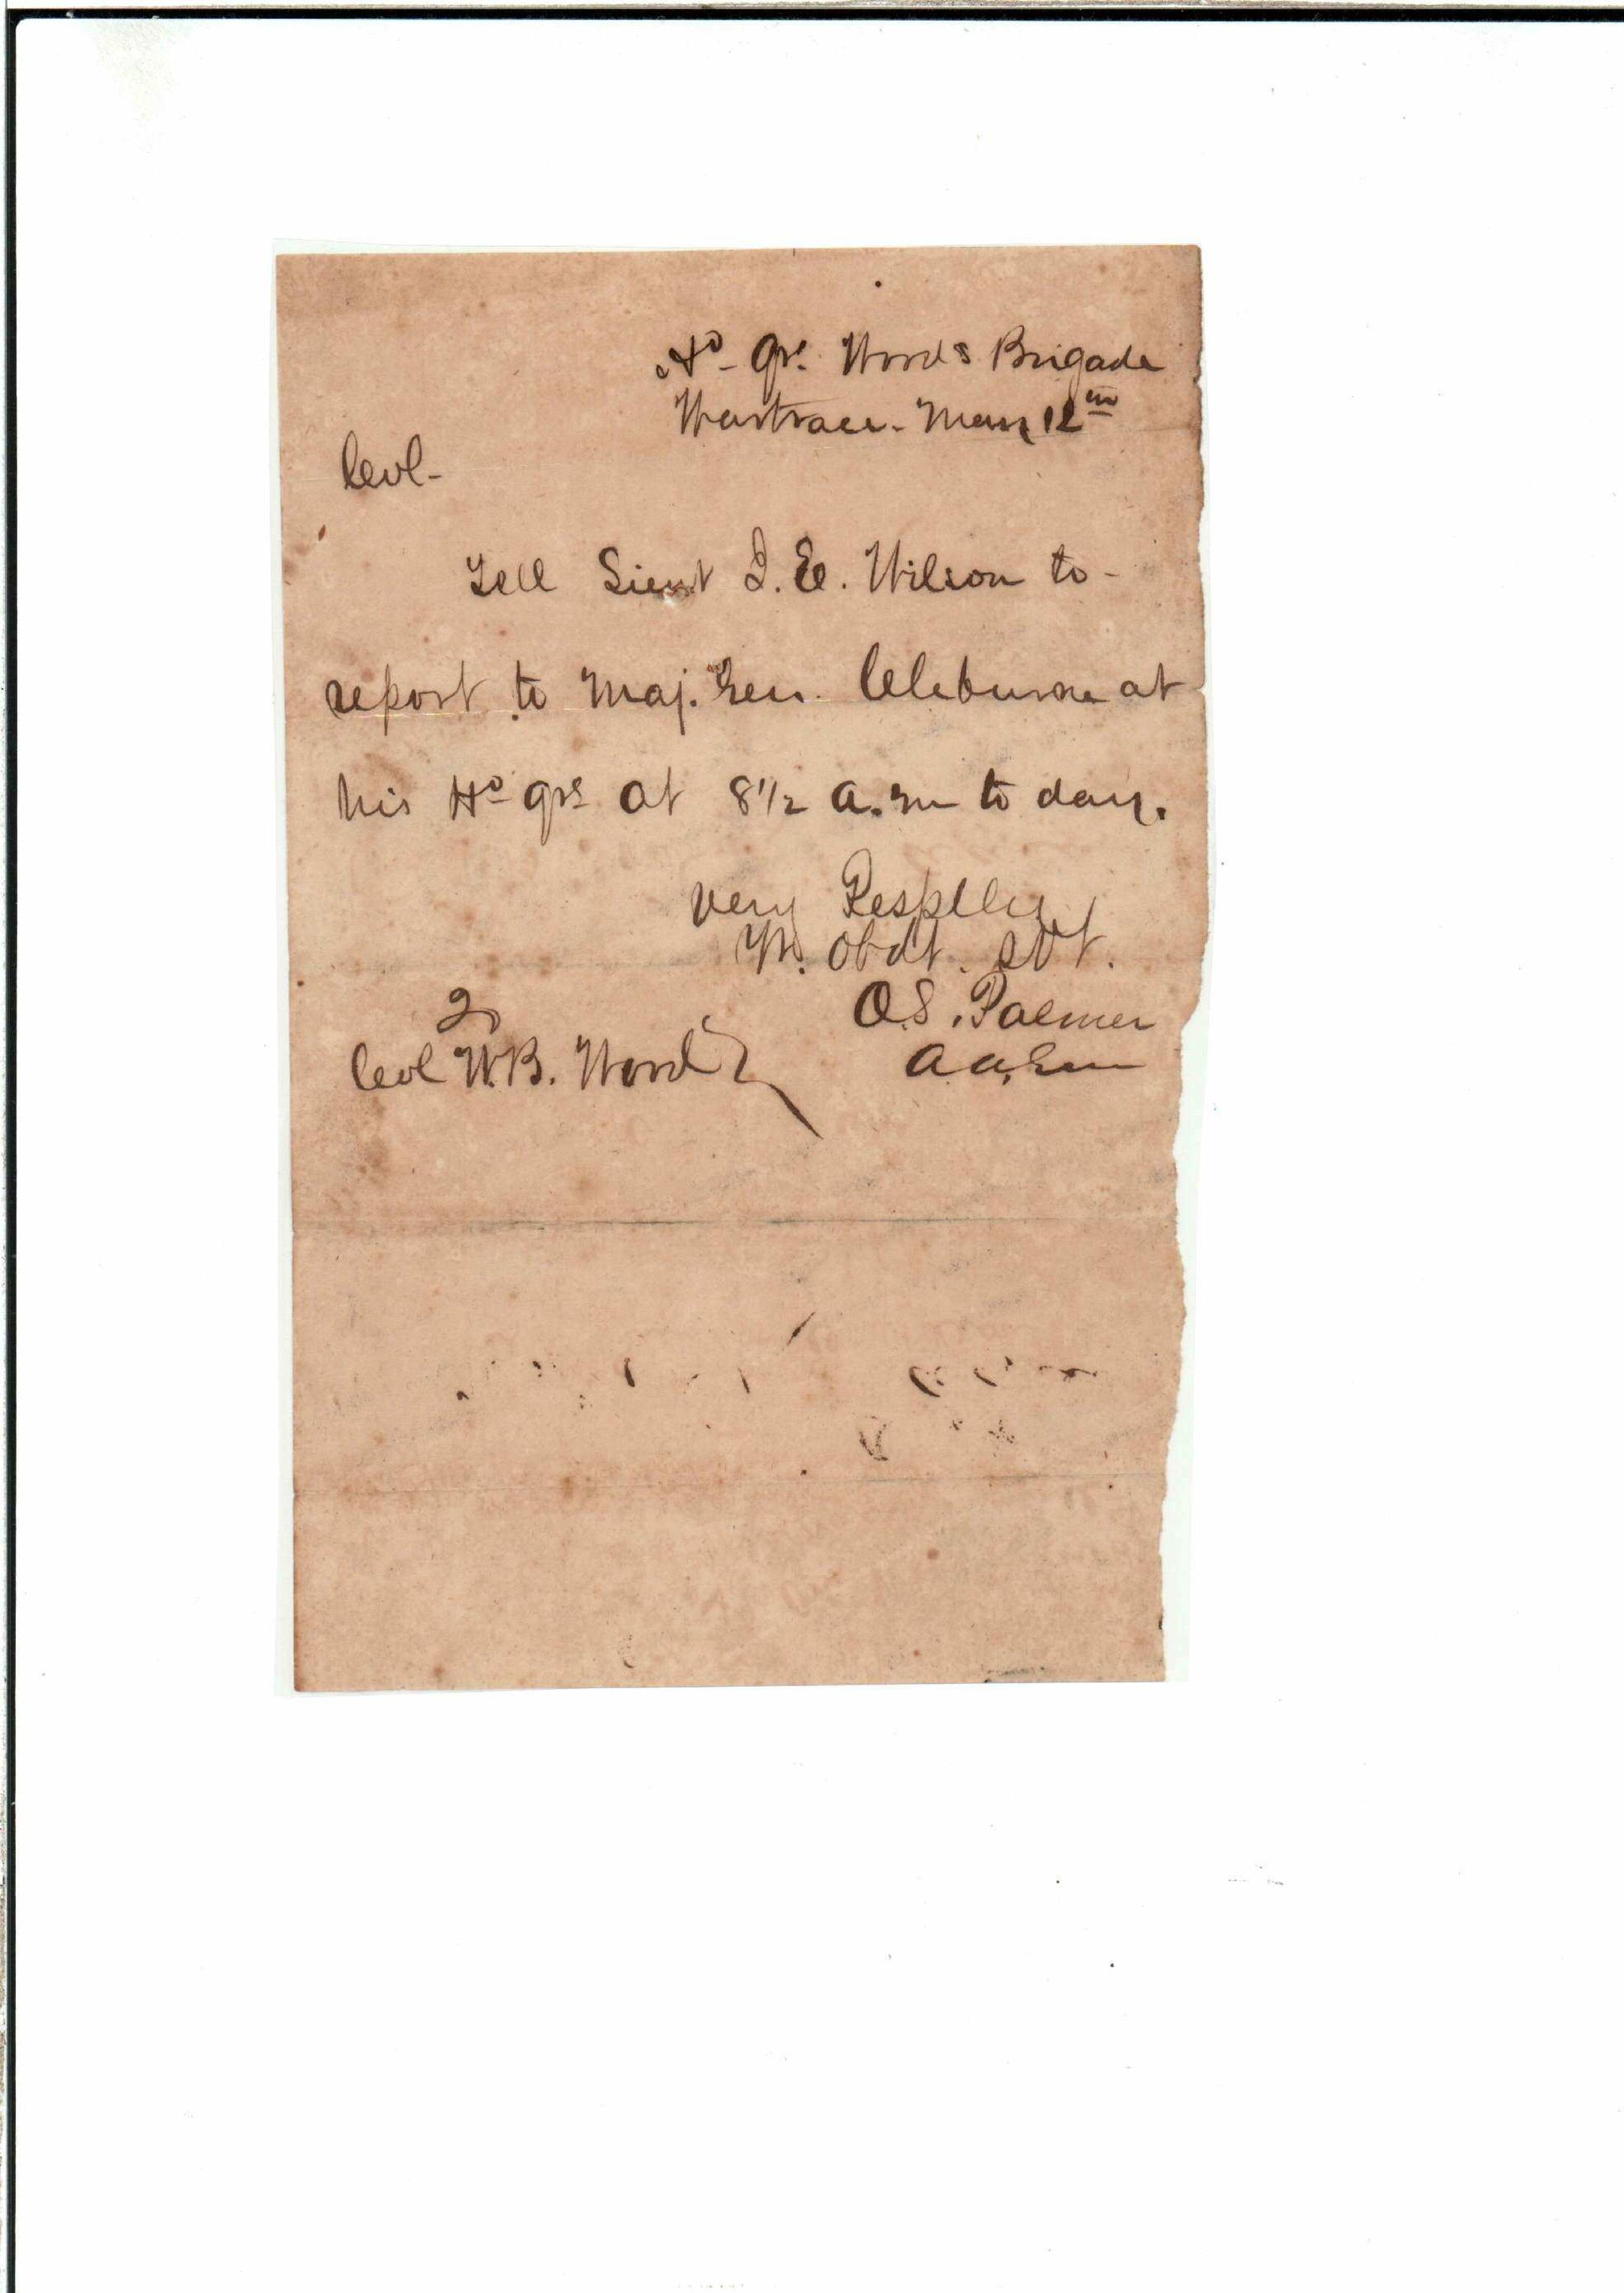 Hd- Qrs. Woods Brigade
Wartrace - May 12th
Col -
Tell Lieut I. E. Wilson to -
report to Maj. Gen. Cleburne at
his Hd qrs at 8 1/2 a.m to day.
Very Resptlly
Yr. Obdt. Svt.
O.S. Palmer
A A Gen
To
Col W.B. Wood